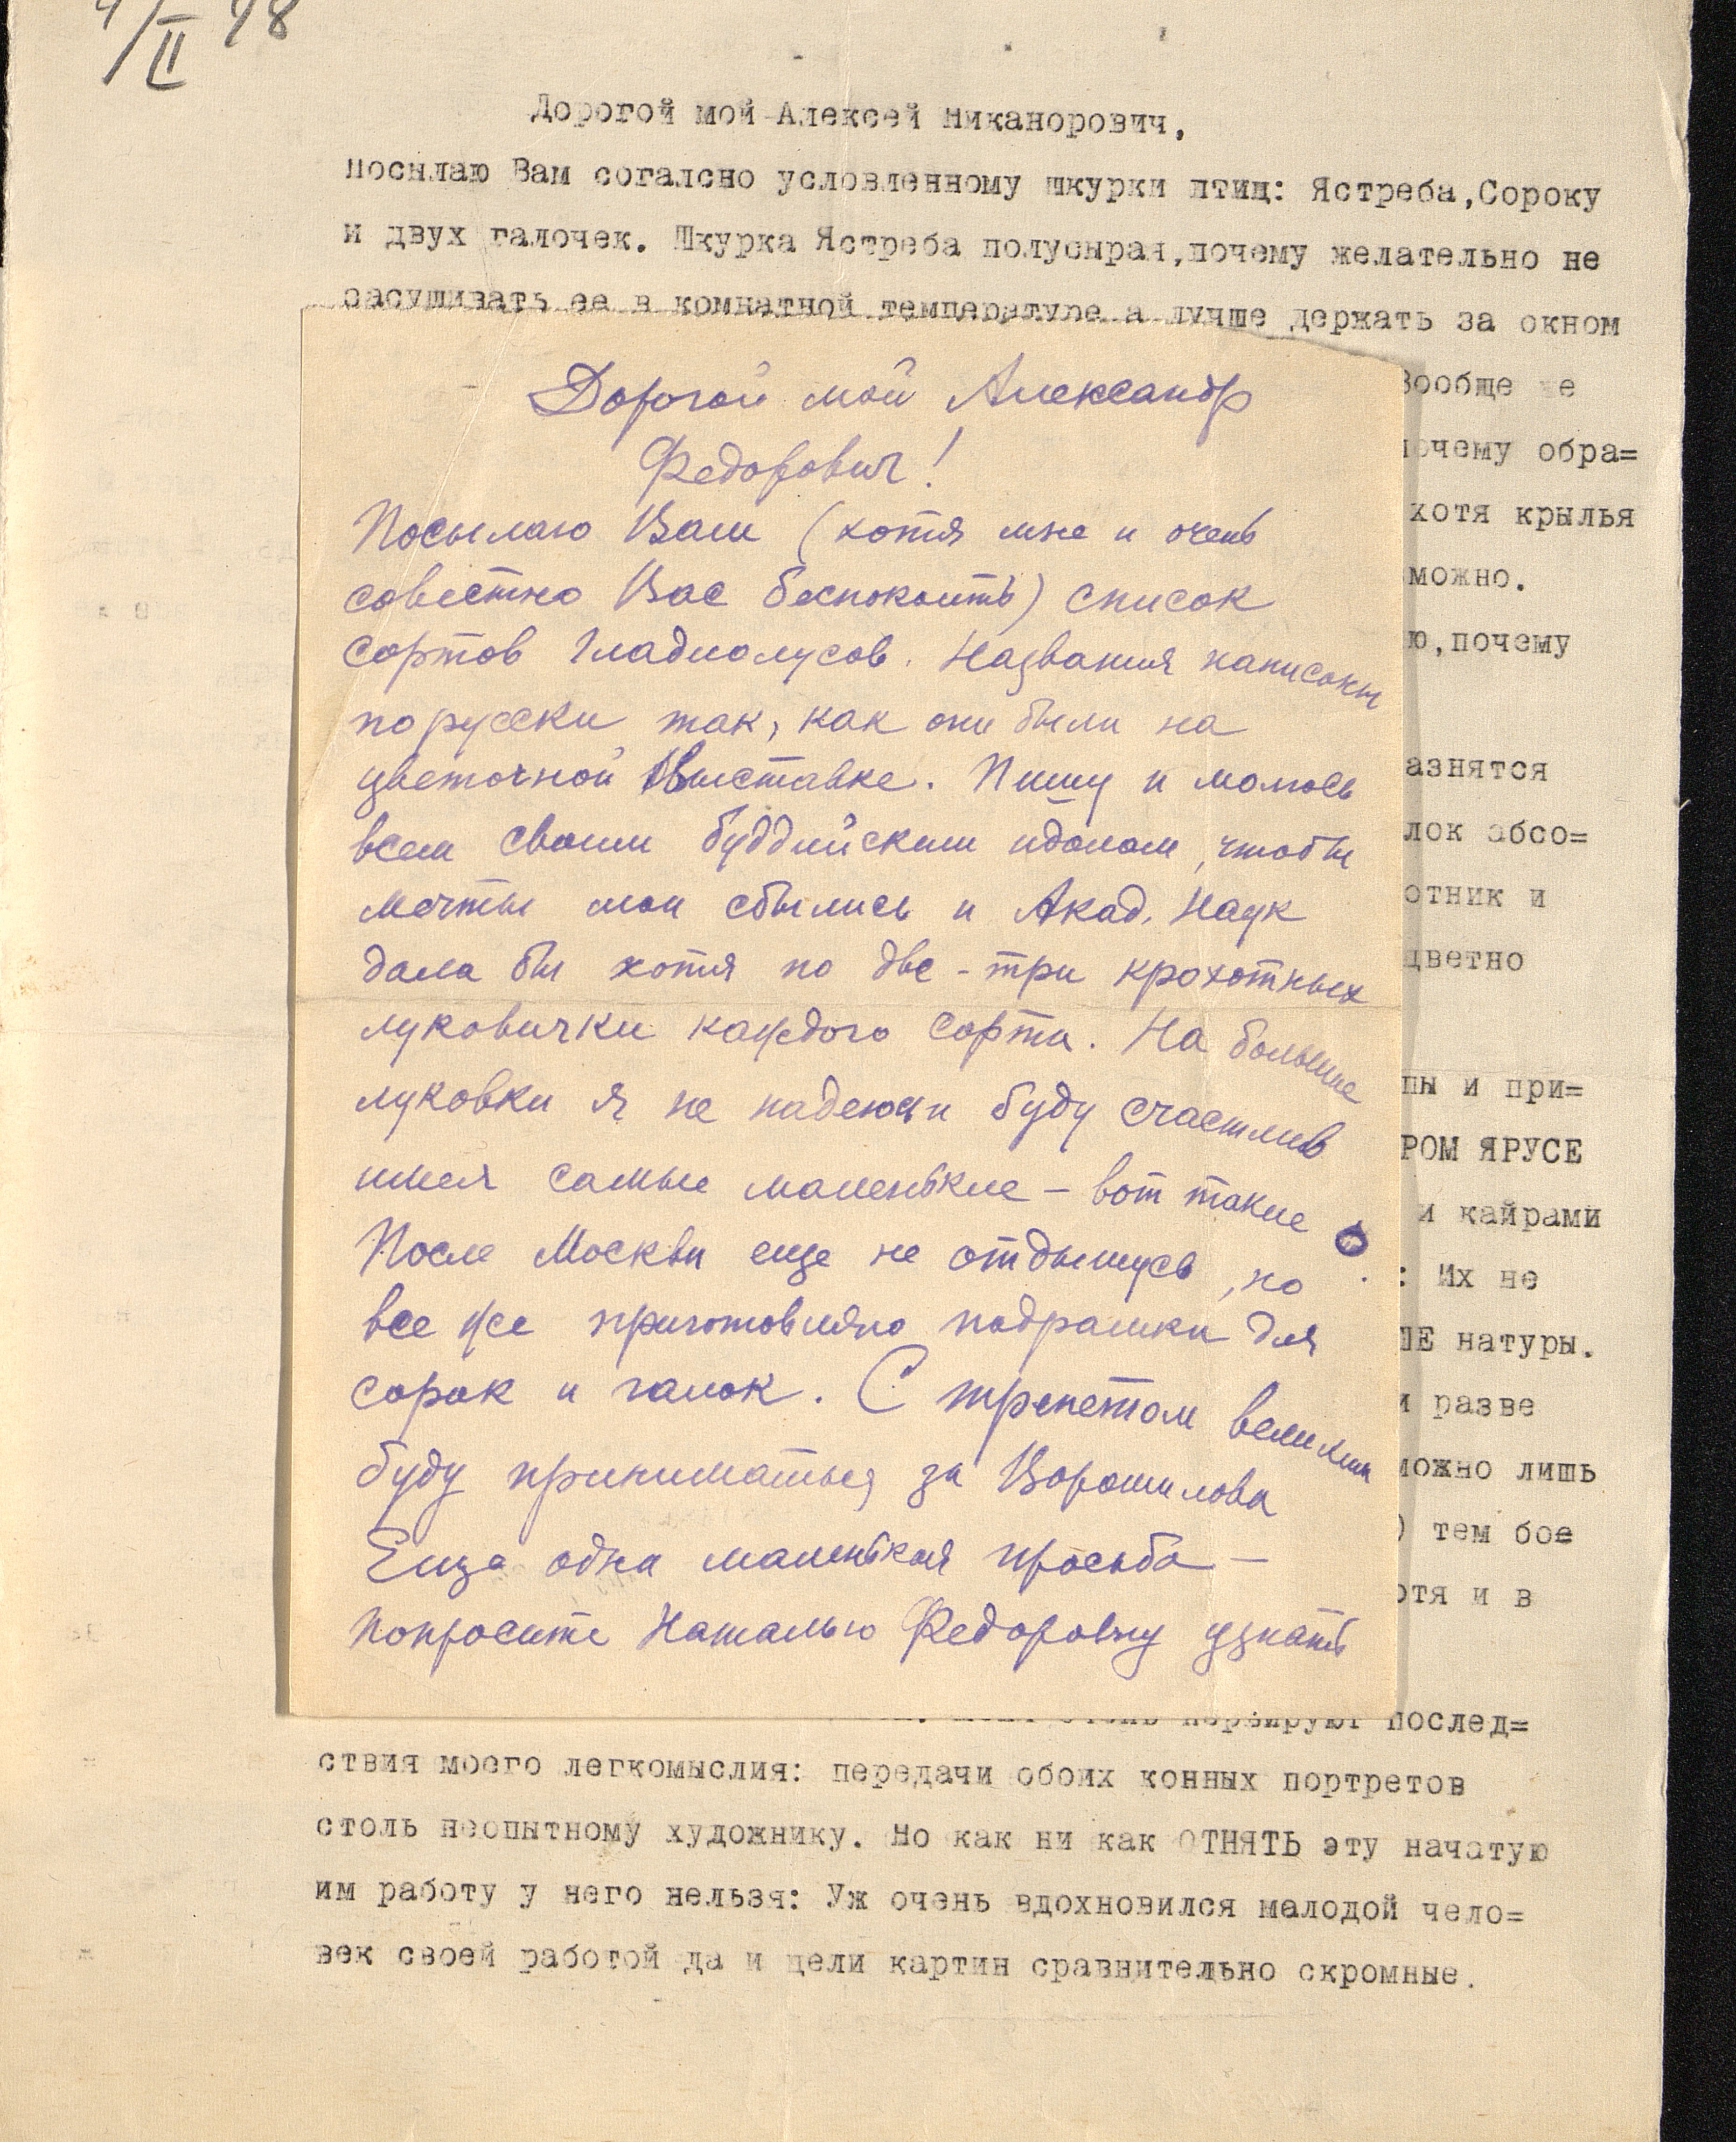 4/II 48
Дорогой мой Алексей Никанорович,
посылаю Вам согалсно условленному шкурки птиц: Ястреба,Сороку
и двух галочек. Шкурка Ястреба полусырая,почему желательно не
засушивать ее в комнатной температуре а лучше держать за окном
Дорогой мой Александр
Федорович!
Посылаю Вам (хотя мне и очень
совестно Вас беспокоить) список
сортов Гладиолусов. Названия написаны
по русски так, как они были на
цветочной Выставке. Пишу и молюсь
всем своим буддийским идолам, чтобы
мечты мои сбылись и Акад. Наук
дала бы хотя по две-три крохотных
луковички каждого сорта. На большие
луковки я не надеюсь и буду счастлив
имея самые маленькие – вот такие
После Москвы еще не отдышусь, но
все же приготовляю подрамки для
сорок и галок. С трепетом великим
буду приниматься за Ворошилова
Еще одна маленькая просьба –
попросите Наталью Федоровну узнать
Вообще не
почему обра=
хотя крылья
можно.
ю,почему
азнятся
лок абсо=
отник и
цветно
пы и при=
РОМ ЯРУСЕ
и кайрами
: Их не
ШЕ натуры.
и разве
можно лишь
) тем бое
отя и в
нервируют послед=
ствия моего легкомыслия: передачи обоих конных портретов
столь неопытному художнику. Но как ни как ОТНЯТЬ эту начатую
им работу у него нельзя: Уж очень вдохновился малодой чело=
век своей работой да и цели картин сравнительно скромные.